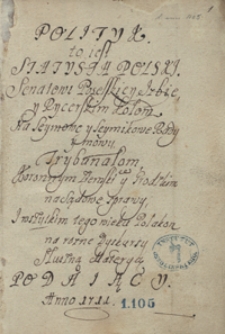 POLITYK.
to iest
STATYSTA POLSKI.
Senatowi Poselskiey Izbie,
y Rycerskim Kołom
Na Seymowe y Seymikowe Rady
y mowy,
Trybunałom,
Ziemskim y Grodzkim
na sądowe sprawy,
I wszytkim tego nieba Polakom
na rozne Dyskursy
słuszną Materyą
PODAIĄCY.
Anno 1711.
1.105